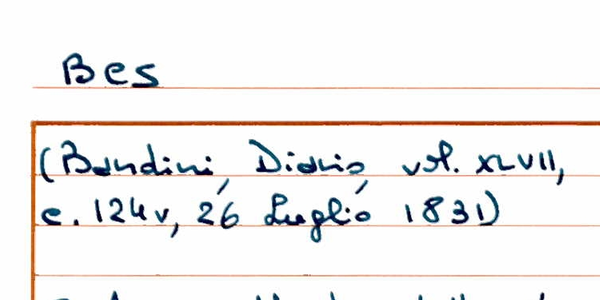 Bes
(Bandini, Diario, vol. XLVII,
c. 124v, 26 Luglio 1831)